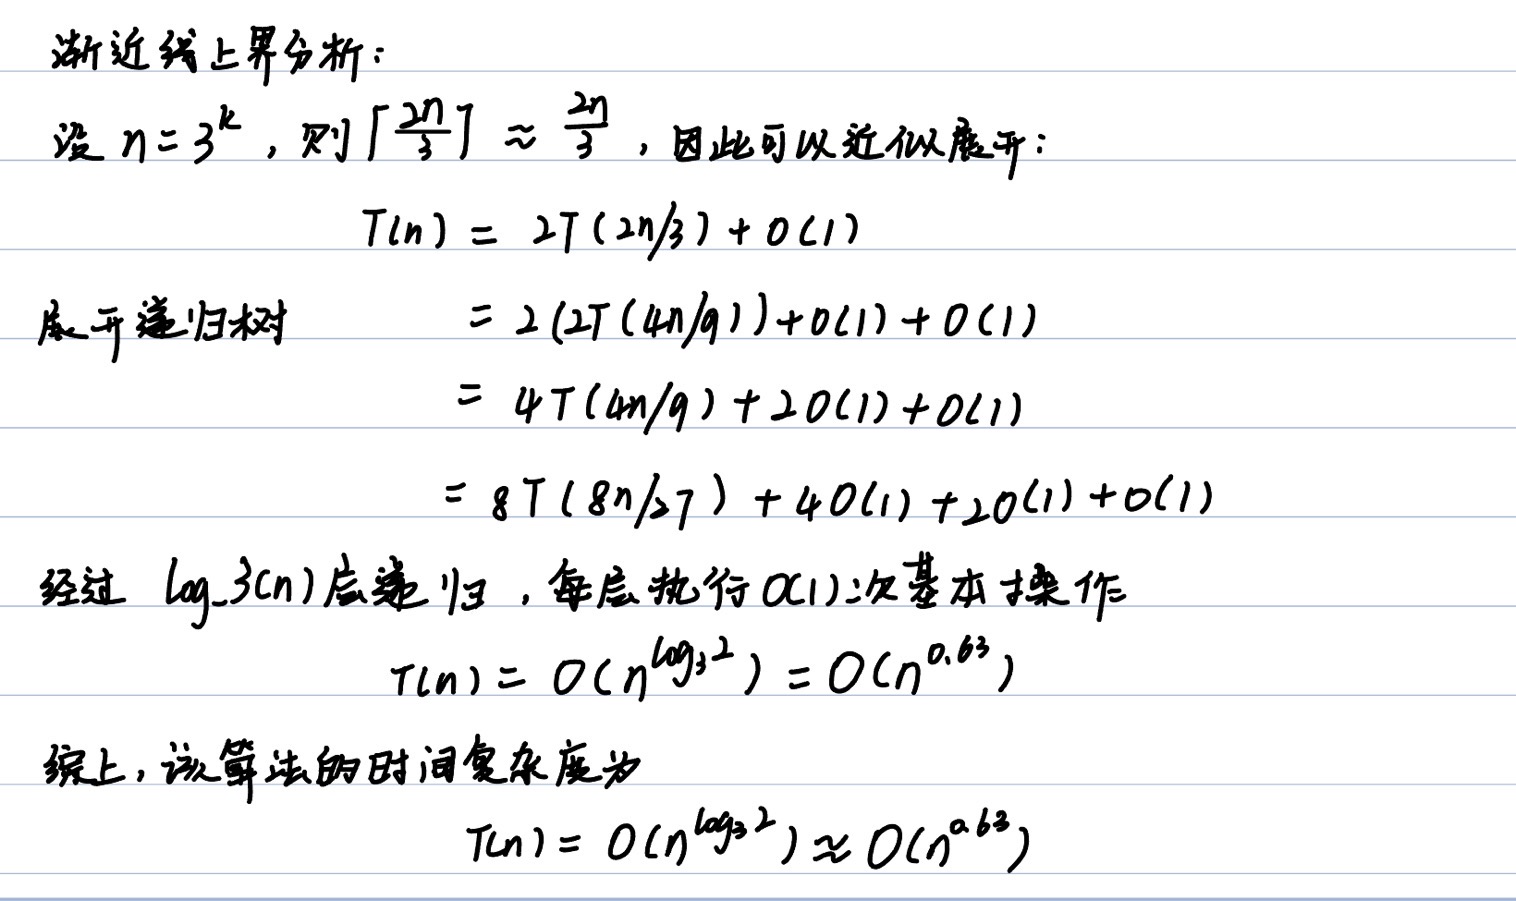 渐近线上界分析：
设 n = 3^k，则 ⌈2n/3⌉ ≈ 2n/3，因此可以近似展开：
T(n) = 2T(2n/3) + O(1)
展开递归树 = 2(2T(4n/9)) + O(1) + O(1)
= 4T(4n/9) + 2O(1) + O(1)
= 8T(8n/27) + 4O(1) + 2O(1) + O(1)
经过 log_3(n) 层递归，每层执行 O(1) 次基本操作
T(n) = O(n^{log_3 2}) = O(n^{0.63})
综上，该算法的时间复杂度为
T(n) = O(n^{log_3 2}) ≈ O(n^{0.63})